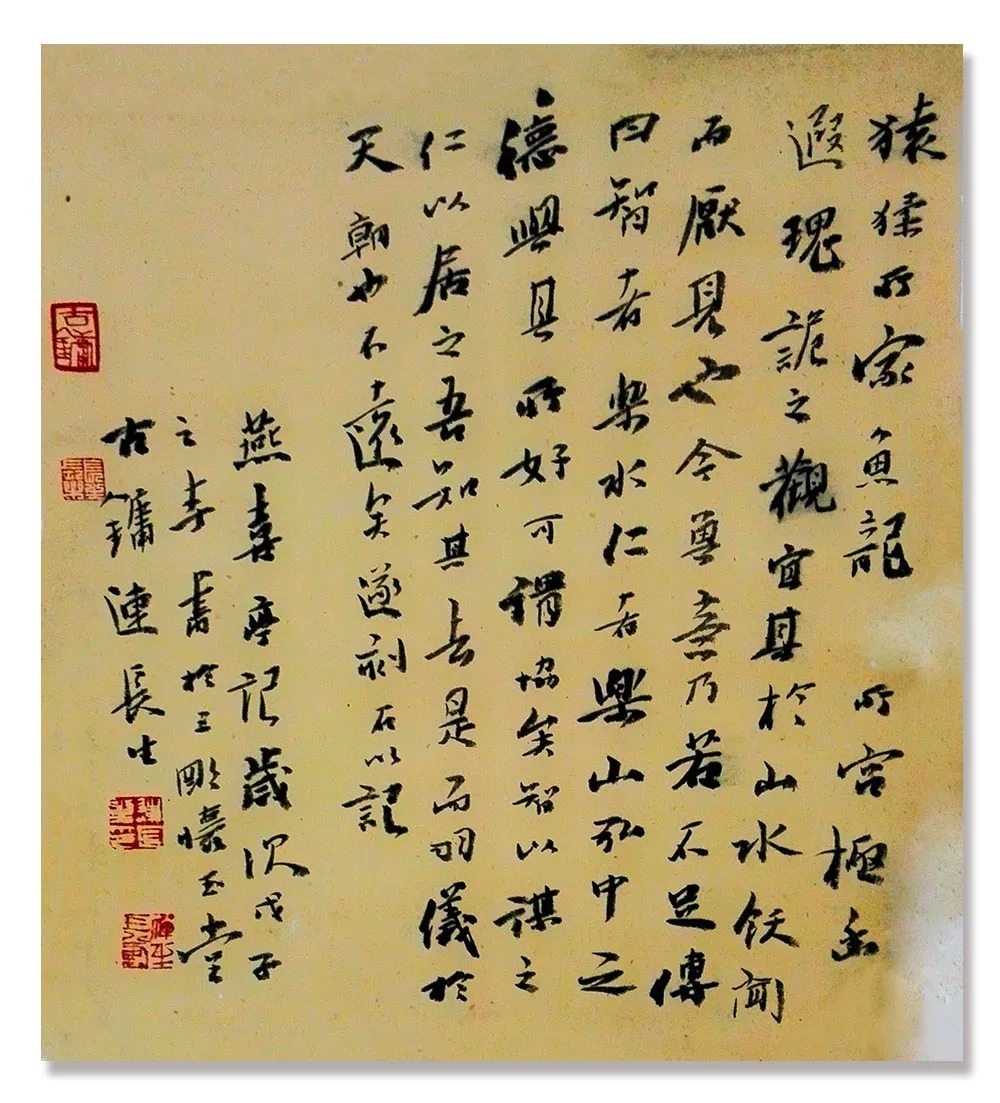 猿猱所家魚龍所宮極幽
遐瑰詭之觀宜其於山水飫聞
而厭見也今意乃若不足傳
曰智者樂水仁者樂山弘中之
德與其所好可謂協矣智以謀之
仁以居之吾知其去是而羽儀於
天朝也不遠矣遂刻石以記
燕喜亭記歲次戊子
之春書於三懷玉堂
古鏞連長生
古鏞